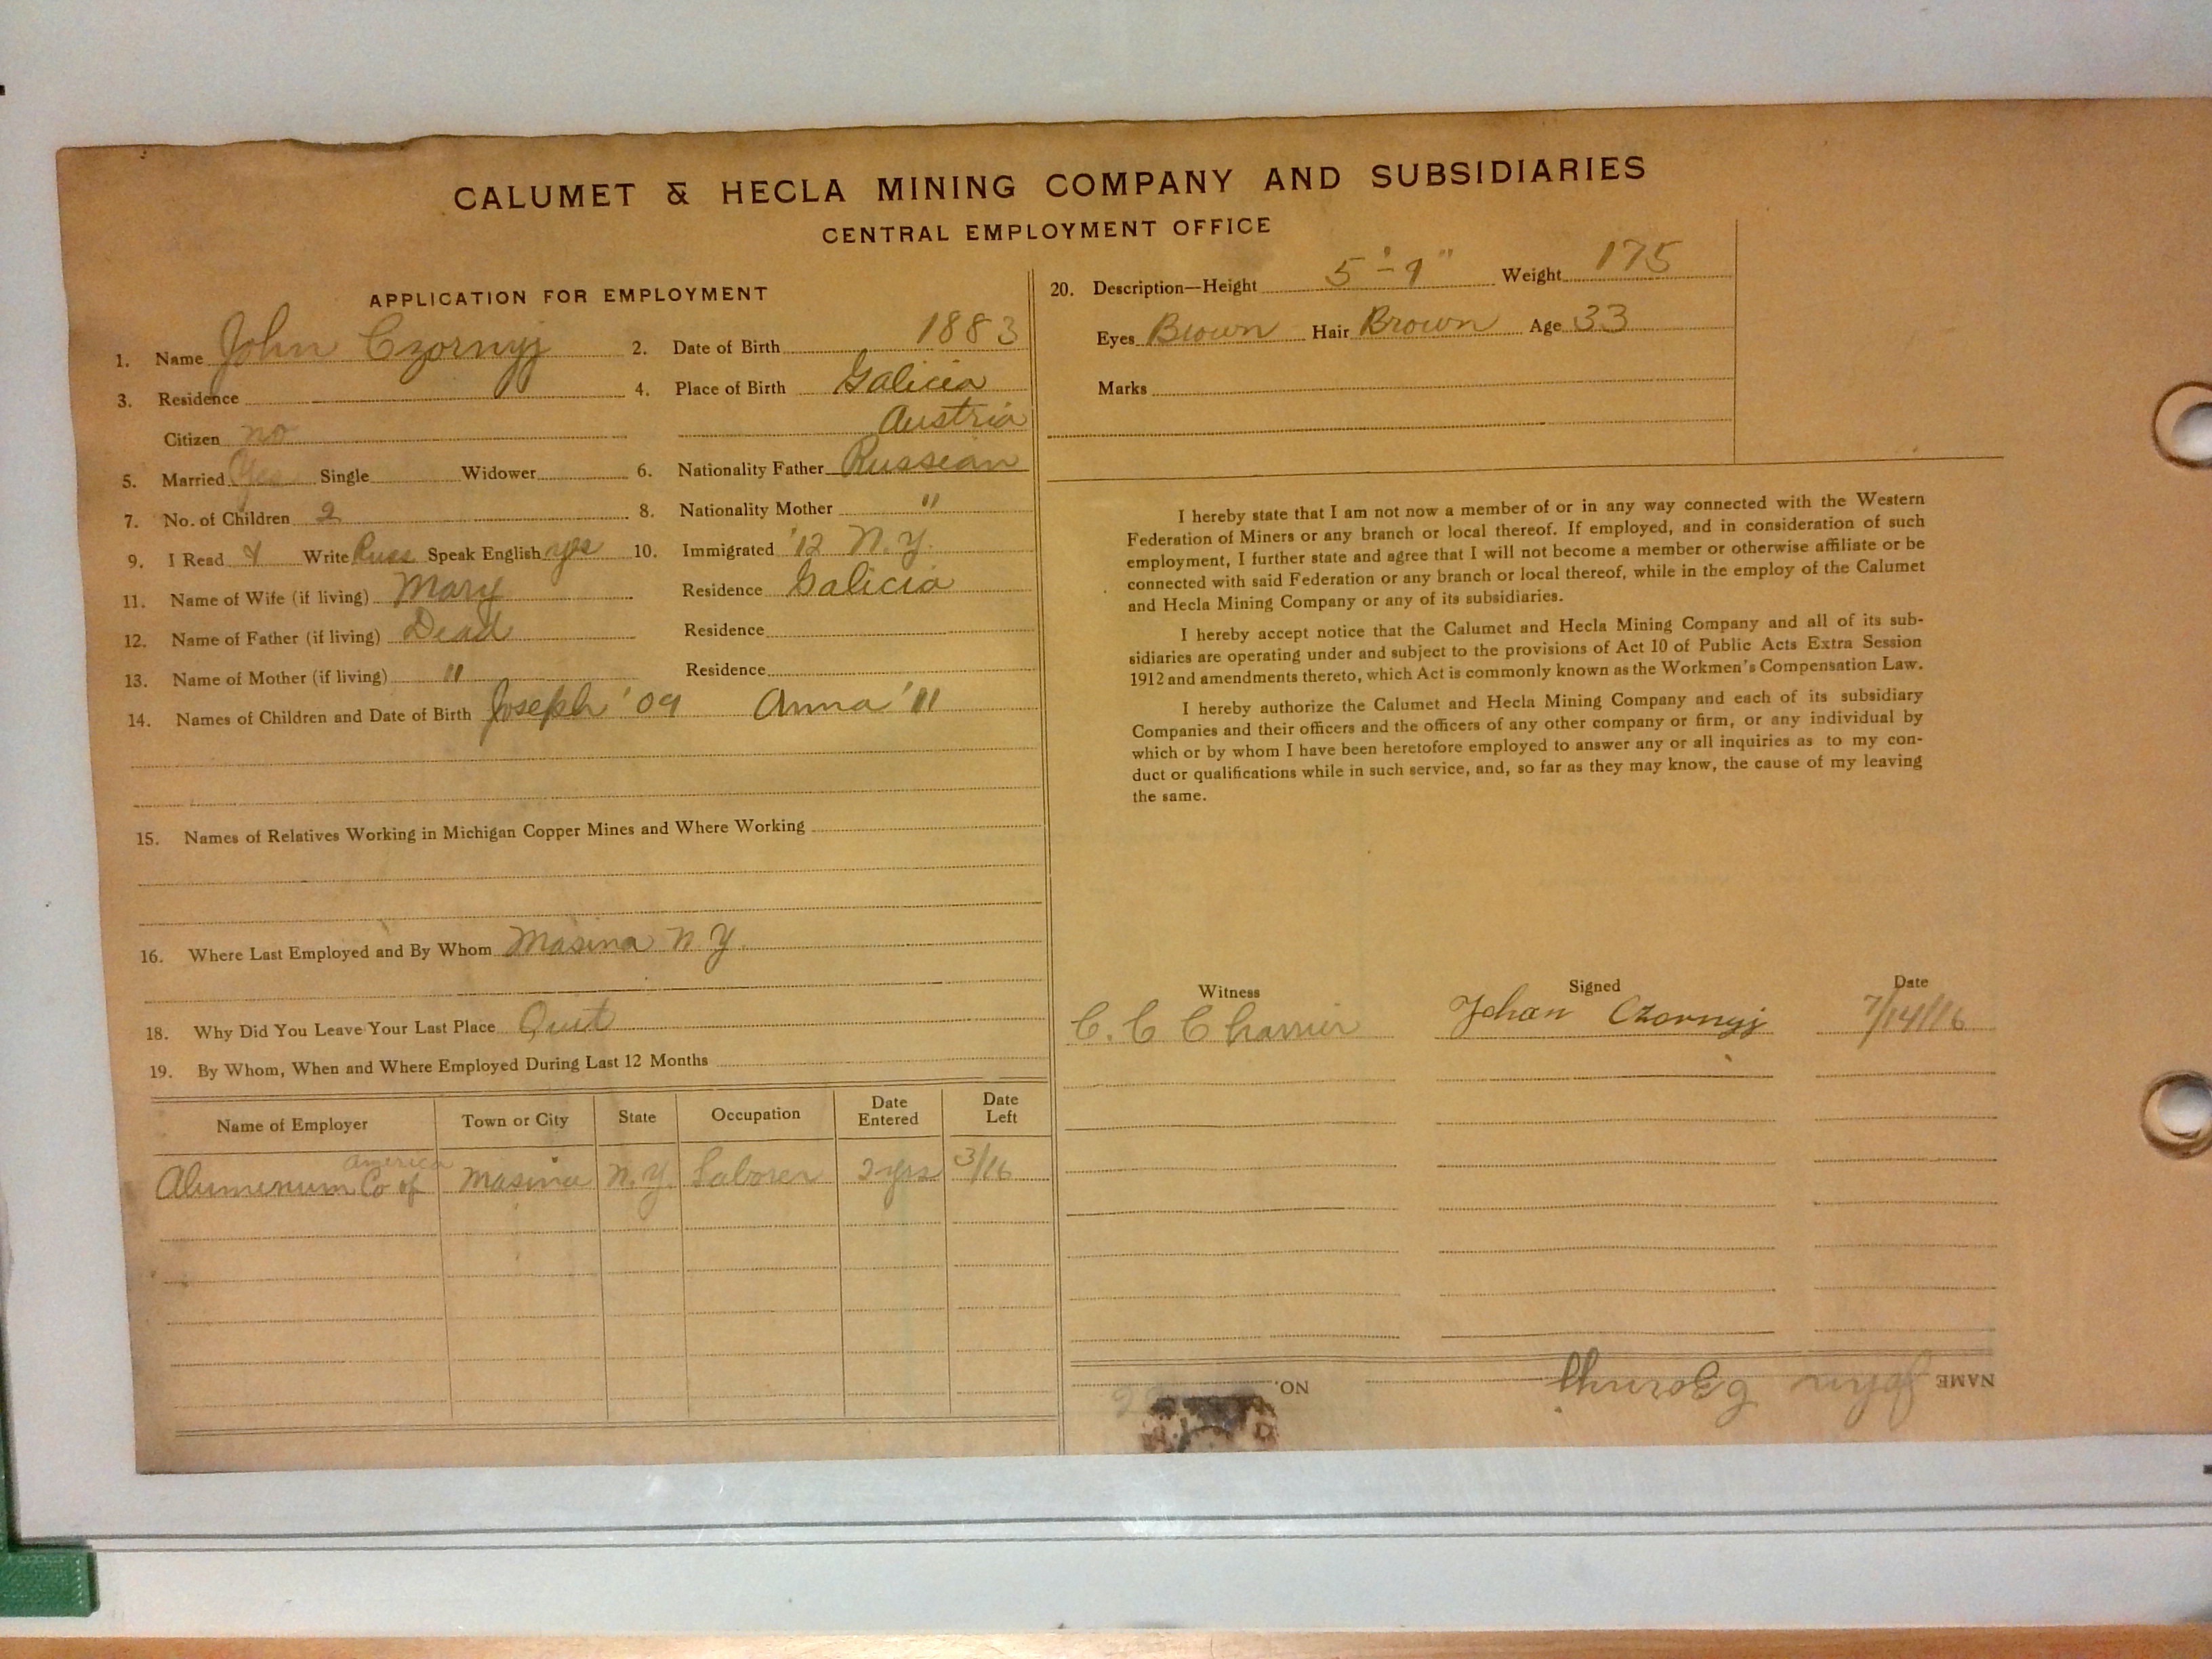 CALUMET & HECLA MINING COMPANY AND SUBSIDIARIES
CENTRAL EMPLOYMENT OFFICE
APPLICATION FOR EMPLOYMENT
1. Name John Czornyj 2. Date of Birth 1883
3. Residence 4. Place of Birth Galicia
Citizen no Austria
5. Married Yes Single Widower 6. Nationality Father Russian
7. No. of Children 2 8. Nationality Mother "
9. I Read & Write Russ Speak English yes 10. Immigrated '12 N.Y.
11. Name of Wife (if living) Mary Residence Galicia
12. Name of Father (if living) Dead Residence
13. Name of Mother (if living) " Residence
14. Names of Children and Date of Birth Joseph '09 Anna '11
15. Names of Relatives Working in Michigan Copper Mines and Where Working
16. Where Last Employed and By Whom Masina N.Y.
18. Why Did You Leave Your Last Place Quit
19. By Whom, When and Where Employed During Last 12 Months
Name of Employer Town or City State Occupation Date Entered Date Left
America
Alumenum Co of Masina N.Y. Laborer 2 yrs 3/16
20. Description—Height 5'-9" Weight 175
Eyes Brown Hair Brown Age 33
Marks
I hereby state that I am not now a member of or in any way connected with the Western
Federation of Miners or any branch or local thereof. If employed, and in consideration of such
employment, I further state and agree that I will not become a member or otherwise affiliate or be
connected with said Federation or any branch or local thereof, while in the employ of the Calumet
and Hecla Mining Company or any of its subsidiaries.
I hereby accept notice that the Calumet and Hecla Mining Company and all of its sub-
sidiaries are operating under and subject to the provisions of Act 10 of Public Acts Extra Session
1912 and amendments thereto, which Act is commonly known as the Workmen's Compensation Law.
I hereby authorize the Calumet and Hecla Mining Company and each of its subsidiary
Companies and their officers and the officers of any other company or firm, or any individual by
which or by whom I have been heretofore employed to answer any or all inquiries as to my con-
duct or qualifications while in such service, and, so far as they may know, the cause of my leaving
the same.
Witness Signed Date
C. C. Charrier Johan Czornyj 7/14/16
NAME John Czornyj NO.